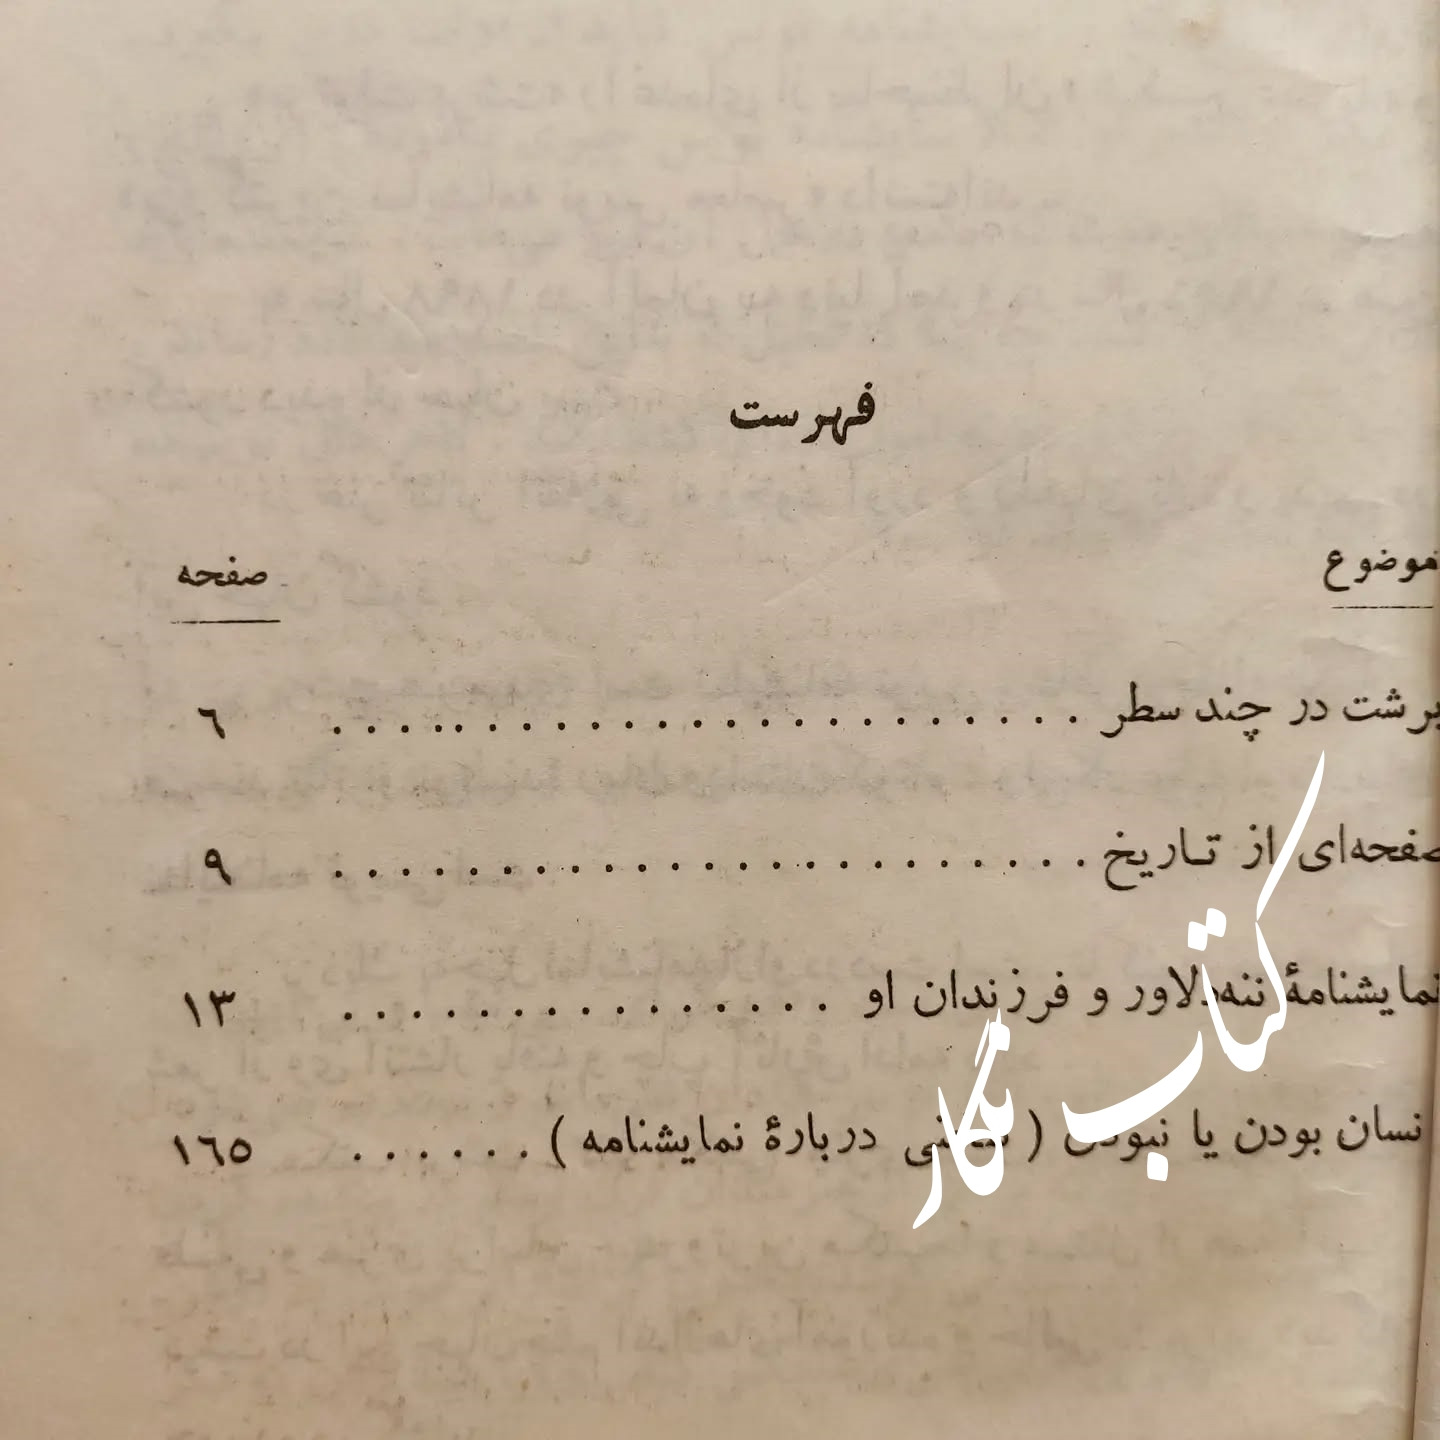 فهرست
موضوع صفحه
برشت در چند سطر ........................ ٦
صفحه‌ای از تاریخ ........................ ۹
نمایشنامهٔ ننه‌دلاور و فرزندان او ............... ۱۳
نسان بودن یا نبودن ( سخنی دربارهٔ نمایشنامه ) ...... ۱٦٥
کتاب نگار